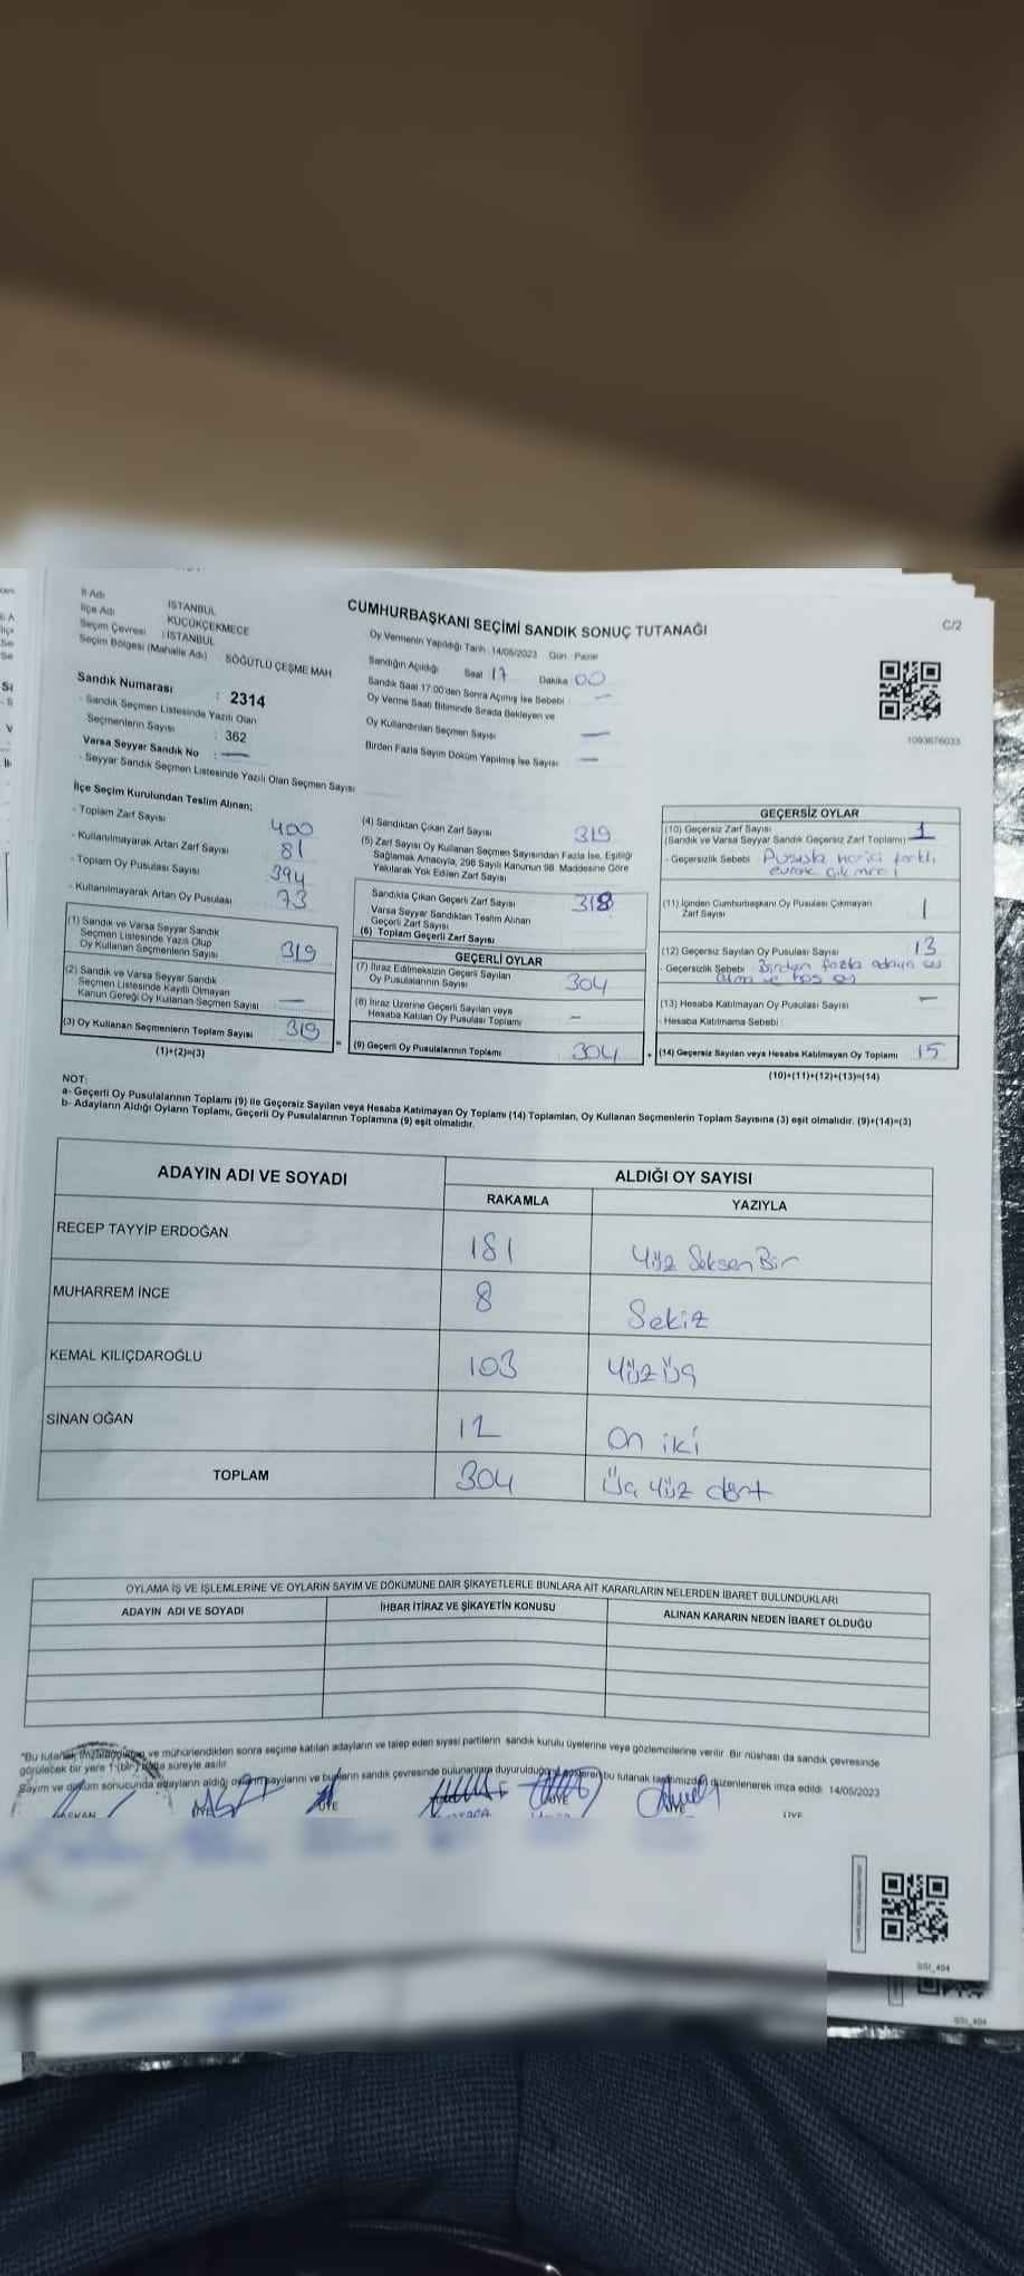 CUMHURBAŞKANI SEÇİMİ SANDIK SONUÇ TUTANAĞI
C/2
İl Adı İSTANBUL
İlçe Adı KÜÇÜKÇEKMECE
Seçim Çevresi : İSTANBUL
Seçim Bölgesi (Mahalle Adı) SÖĞÜTLÜ ÇEŞME MAH
Sandık Numarası : 2314
- Sandık Seçmen Listesinde Yazılı Olan
Seçmenlerin Sayısı : 362
Varsa Seyyar Sandık No : —
- Seyyar Sandık Seçmen Listesinde Yazılı Olan Seçmen Sayısı
Oy Vermenin Yapıldığı Tarih 14/05/2023 Gün Pazar
Sandığın Açıldığı Saat 17 Dakika 00
Sandık Saat 17:00'den Sonra Açılmış İse Sebebi —
Oy Verme Saati Bitiminde Sırada Bekleyen ve
Oy Kullandırılan Seçmen Sayısı —
Birden Fazla Sayım Döküm Yapılmış İse Sayısı —
1093676033
İlçe Seçim Kurulundan Teslim Alınan;
- Toplam Zarf Sayısı 400
- Kullanılmayarak Artan Zarf Sayısı 81
- Toplam Oy Pusulası Sayısı 394
- Kullanılmayarak Artan Oy Pusulası 73
(1) Sandık ve Varsa Seyyar Sandık
Seçmen Listesinde Yazılı Olup
Oy Kullanan Seçmenlerin Sayısı 319
(2) Sandık ve Varsa Seyyar Sandık
Seçmen Listesinde Kayıtlı Olmayan
Kanun Gereği Oy Kullanan Seçmen Sayısı —
(3) Oy Kullanan Seçmenlerin Toplam Sayısı 319
(1)+(2)=(3)
(4) Sandıktan Çıkan Zarf Sayısı 319
(5) Zarf Sayısı Oy Kullanan Seçmen Sayısından Fazla İse, Eşitliği
Sağlamak Amacıyla, 298 Sayılı Kanunun 98. Maddesine Göre
Yakılarak Yok Edilen Zarf Sayısı
Sandıkta Çıkan Geçerli Zarf Sayısı 318
Varsa Seyyar Sandıktan Teslim Alınan
Geçerli Zarf Sayısı
(6) Toplam Geçerli Zarf Sayısı
GEÇERLİ OYLAR
(7) İtiraz Edilmeksizin Geçerli Sayılan
Oy Pusulalarının Sayısı 304
(8) İtiraz Üzerine Geçerli Sayılan veya
Hesaba Katılan Oy Pusulası Toplamı —
= (9) Geçerli Oy Pusulalarının Toplamı 304
GEÇERSİZ OYLAR
(10) Geçersiz Zarf Sayısı 1
(Sandık ve Varsa Seyyar Sandık Geçersiz Zarf Toplamı)
- Geçersizlik Sebebi Pusula harici farklı
evrak çıkması
(11) İçinden Cumhurbaşkanı Oy Pusulası Çıkmayan
Zarf Sayısı 1
(12) Geçersiz Sayılan Oy Pusulası Sayısı 13
- Geçersizlik Sebebi Birden fazla adaya
ve boş oy
(13) Hesaba Katılmayan Oy Pusulası Sayısı —
- Hesaba Katılmama Sebebi
+ (14) Geçersiz Sayılan veya Hesaba Katılmayan Oy Toplamı 15
(10)+(11)+(12)+(13)=(14)
NOT:
a- Geçerli Oy Pusulalarının Toplamı (9) ile Geçersiz Sayılan veya Hesaba Katılmayan Oy Toplamı (14) Toplamları, Oy Kullanan Seçmenlerin Toplam Sayısına (3) eşit olmalıdır. (9)+(14)=(3)
b- Adayların Aldığı Oyların Toplamı, Geçerli Oy Pusulalarının Toplamına (9) eşit olmalıdır.
ADAYIN ADI VE SOYADI
ALDIĞI OY SAYISI
RAKAMLA YAZIYLA
RECEP TAYYİP ERDOĞAN 181 Yüz Seksen Bir
MUHARREM İNCE 8 Sekiz
KEMAL KILIÇDAROĞLU 103 Yüz Üç
SİNAN OĞAN 12 On iki
TOPLAM 304 Üç Yüz dört
OYLAMA İŞ VE İŞLEMLERİNE VE OYLARIN SAYIM VE DÖKÜMÜNE DAİR ŞİKAYETLERLE BUNLARA AİT KARARLARIN NELERDEN İBARET BULUNDUKLARI
ADAYIN ADI VE SOYADI İHBAR İTİRAZ VE ŞİKAYETİN KONUSU ALINAN KARARIN NEDEN İBARET OLDUĞU
"Bu tutanak ve mühürlendikten sonra seçime katılan adayların ve talep eden siyasi partilerin sandık kurulu üyelerine veya gözlemcilerine verilir. Bir nüshası da sandık çevresinde
görülecek bir yere 1 (bir) süreyle asılır
Sayım ve döküm sonucunda adayların aldığı oyların sayılarını ve bunların sandık çevresinde bulunanlara duyurulduğunu bu tutanak tarafımızdan düzenlenerek imza edildi 14/05/2023
BAŞKAN ÜYE ÜYE ÜYE ÜYE ÜYE
SSI_404
SSI_404